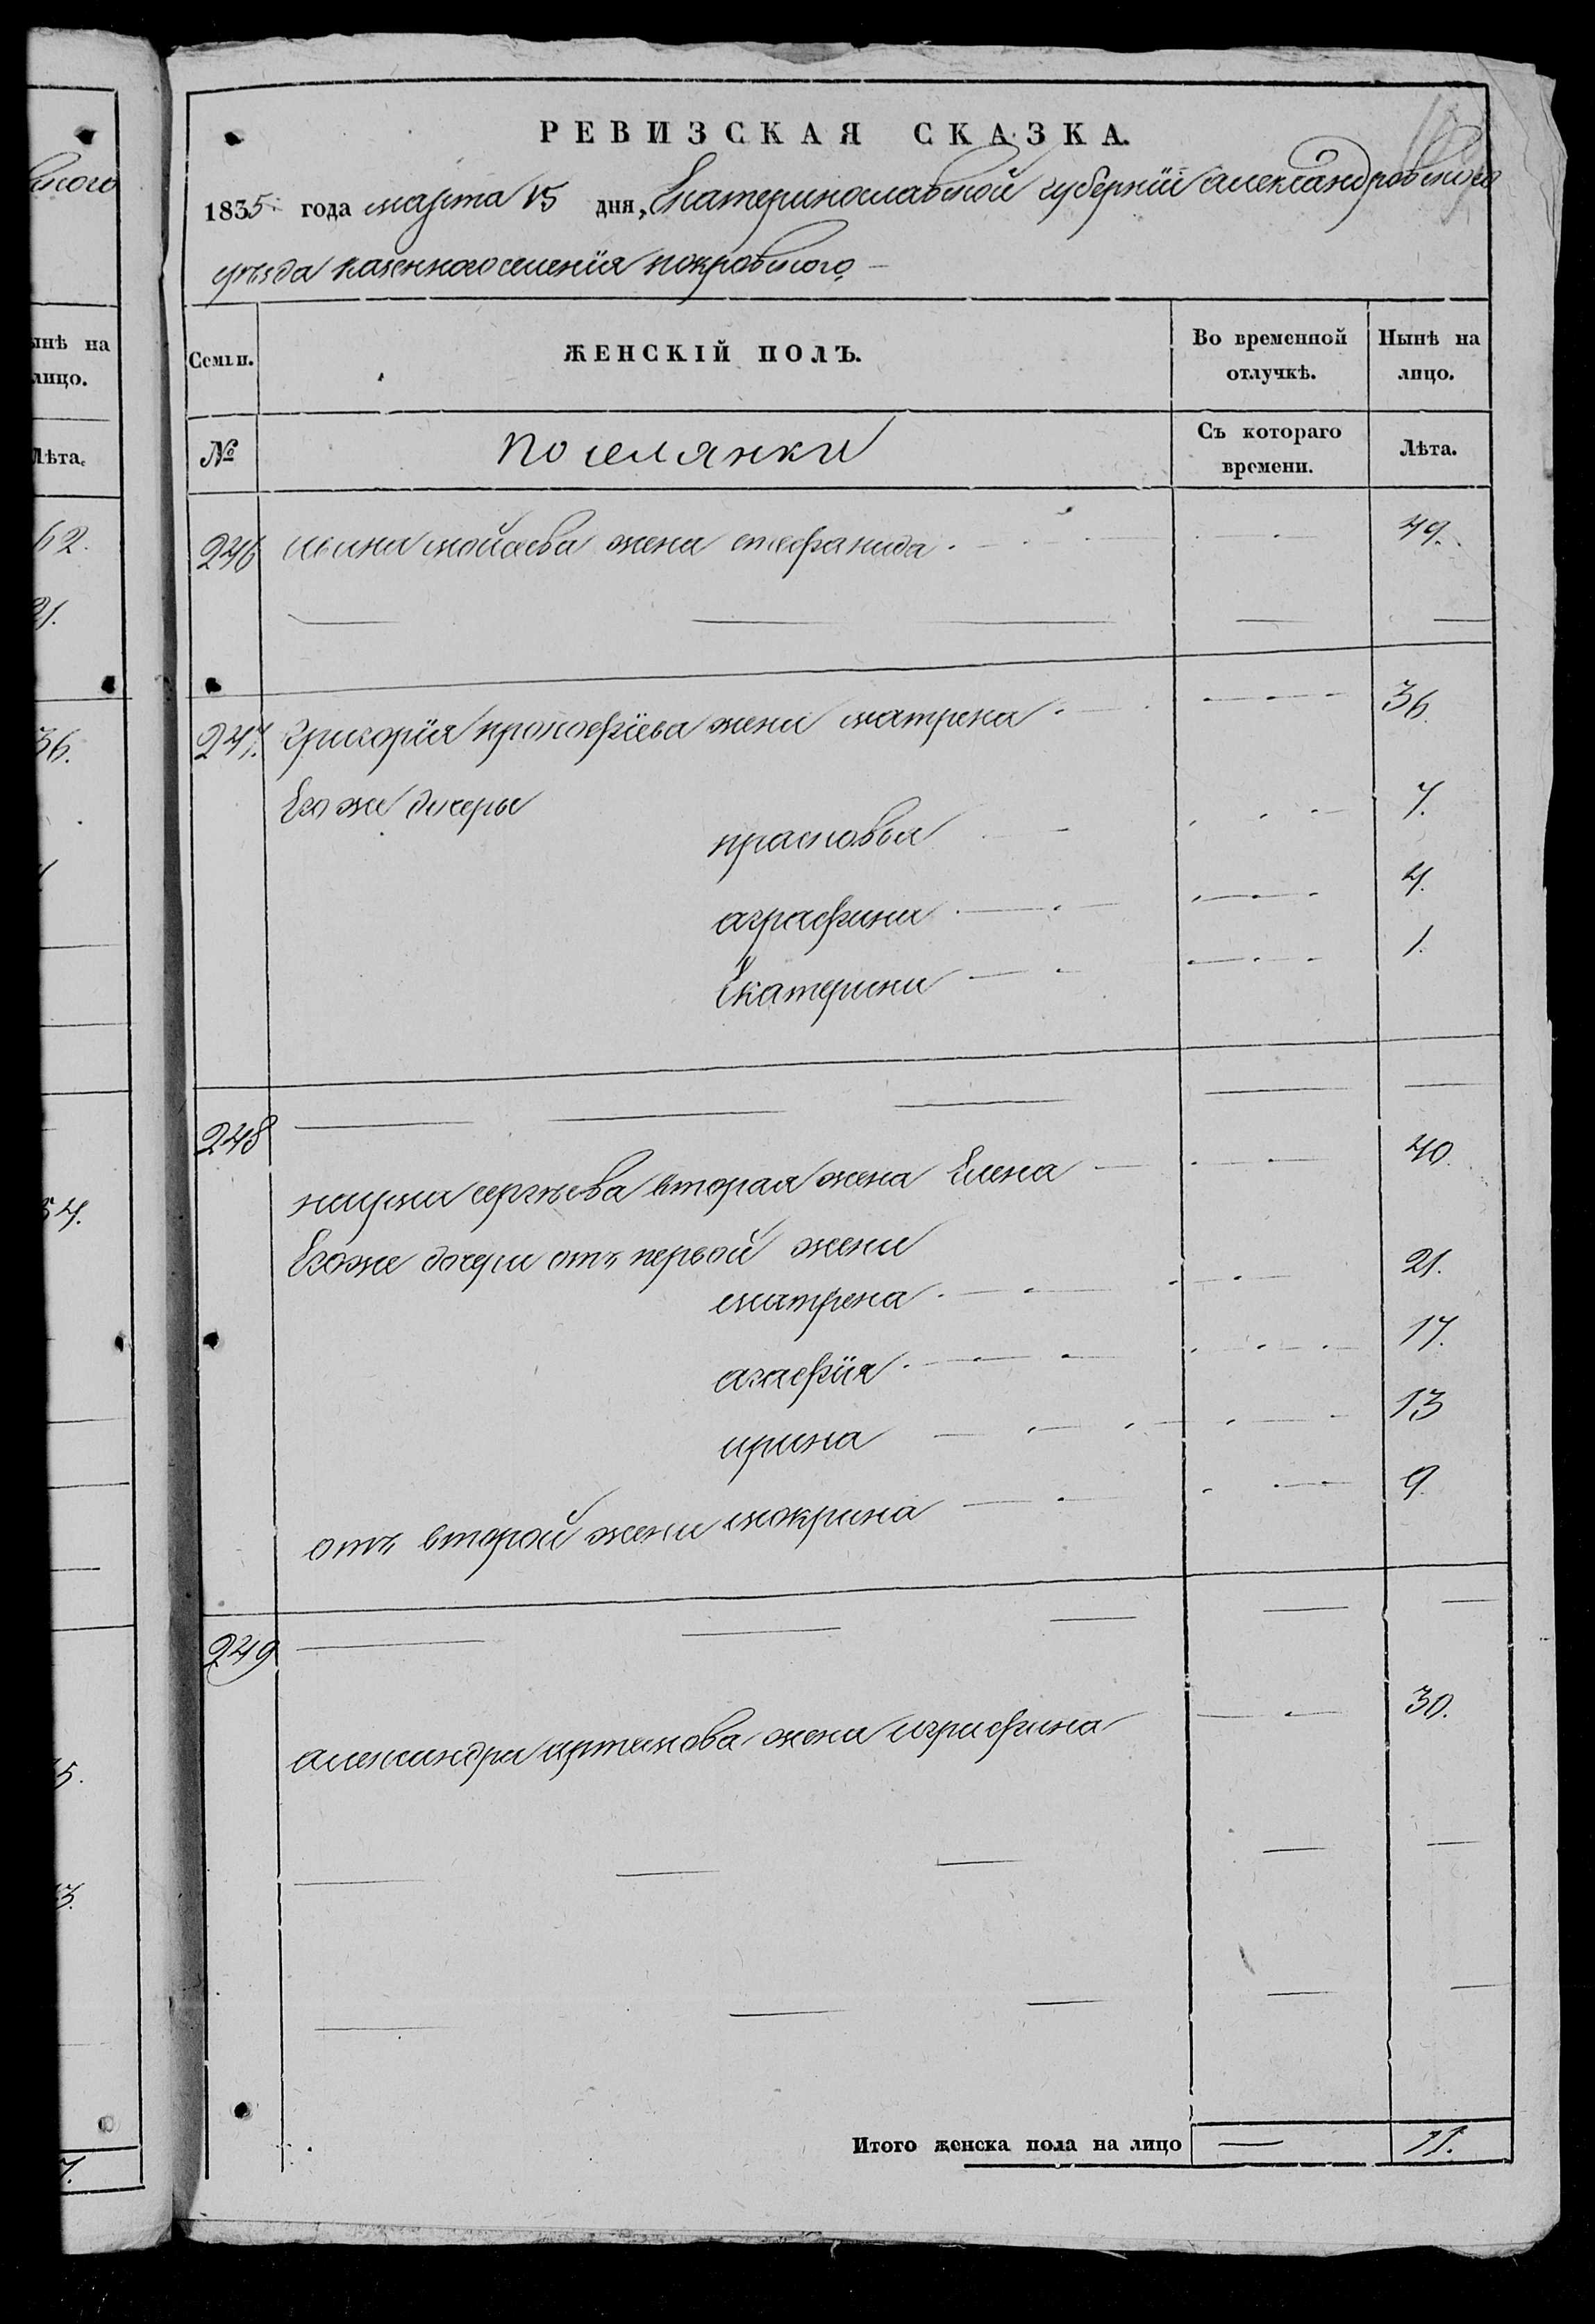 ного
РЕВИЗСКАЯ СКАЗКА.
1835 года марта 15 дня, Екатеринославской губернїи александровского
уѣзда казенного селенїя покровского
ынѣ на
лицо.
Лѣта.
62.
21.
36.
54.
5.
3.
7.
Семьи.
ЖЕНСКІЙ ПОЛЪ.
Во временной
отлучкѣ.
Нынѣ на
лицо.
№
поселянки
Съ котораго
времени.
Лѣта.
246 мойсева жена стефанида 49.
247. Григорїя прокофїева жена матрена 36.
Его же дочеры
прасковья 7.
аграфина 4.
Екатерина 1.
248
наума сергѣева вторая жена Елена 40.
Его же дочери отъ первой жены
матрена 21.
агафїя 17.
ирина 13
отъ второй жены мокрина 9.
249
александра артемова жена аграфина 30.
Итого женска пола на лицо 11.